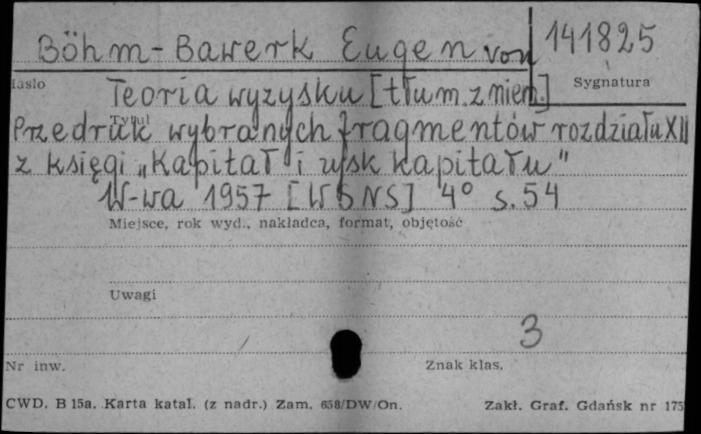 Böhm-Bawerk Eugen von 141825
Hasło Sygnatura
Teoria wyzysku [tłum. z niem.]
Tytuł
Przedruk wybranych fragmentów rozdziału XII
z księgi „Kapitał i zysk kapitału"
W-wa 1957 [WSNS] 4° s. 54
Miejsce, rok wyd., nakładca, format, objętość
Uwagi
3
Nr inw. Znak klas.
CWD. B 15a. Karta katal. (z nadr.) Zam. 658/DW/On. Zakł. Graf. Gdańsk nr 175